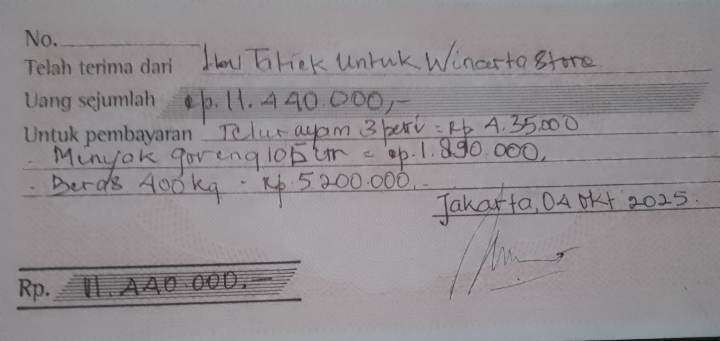 No.
Telah terima dari Ibu Tatiek Untuk Winarta Store
Uang sejumlah Rp. 11.440.000,-
Untuk pembayaran Telur ayam 3 peti = Rp 4.35.000
- Minyak goreng 105 Ltr = Rp. 1.890.000,
- Beras 400 kg - Rp. 5.200.000,-
Jakarta, 04 Okt 2025.
Rp. 11.440.000,-